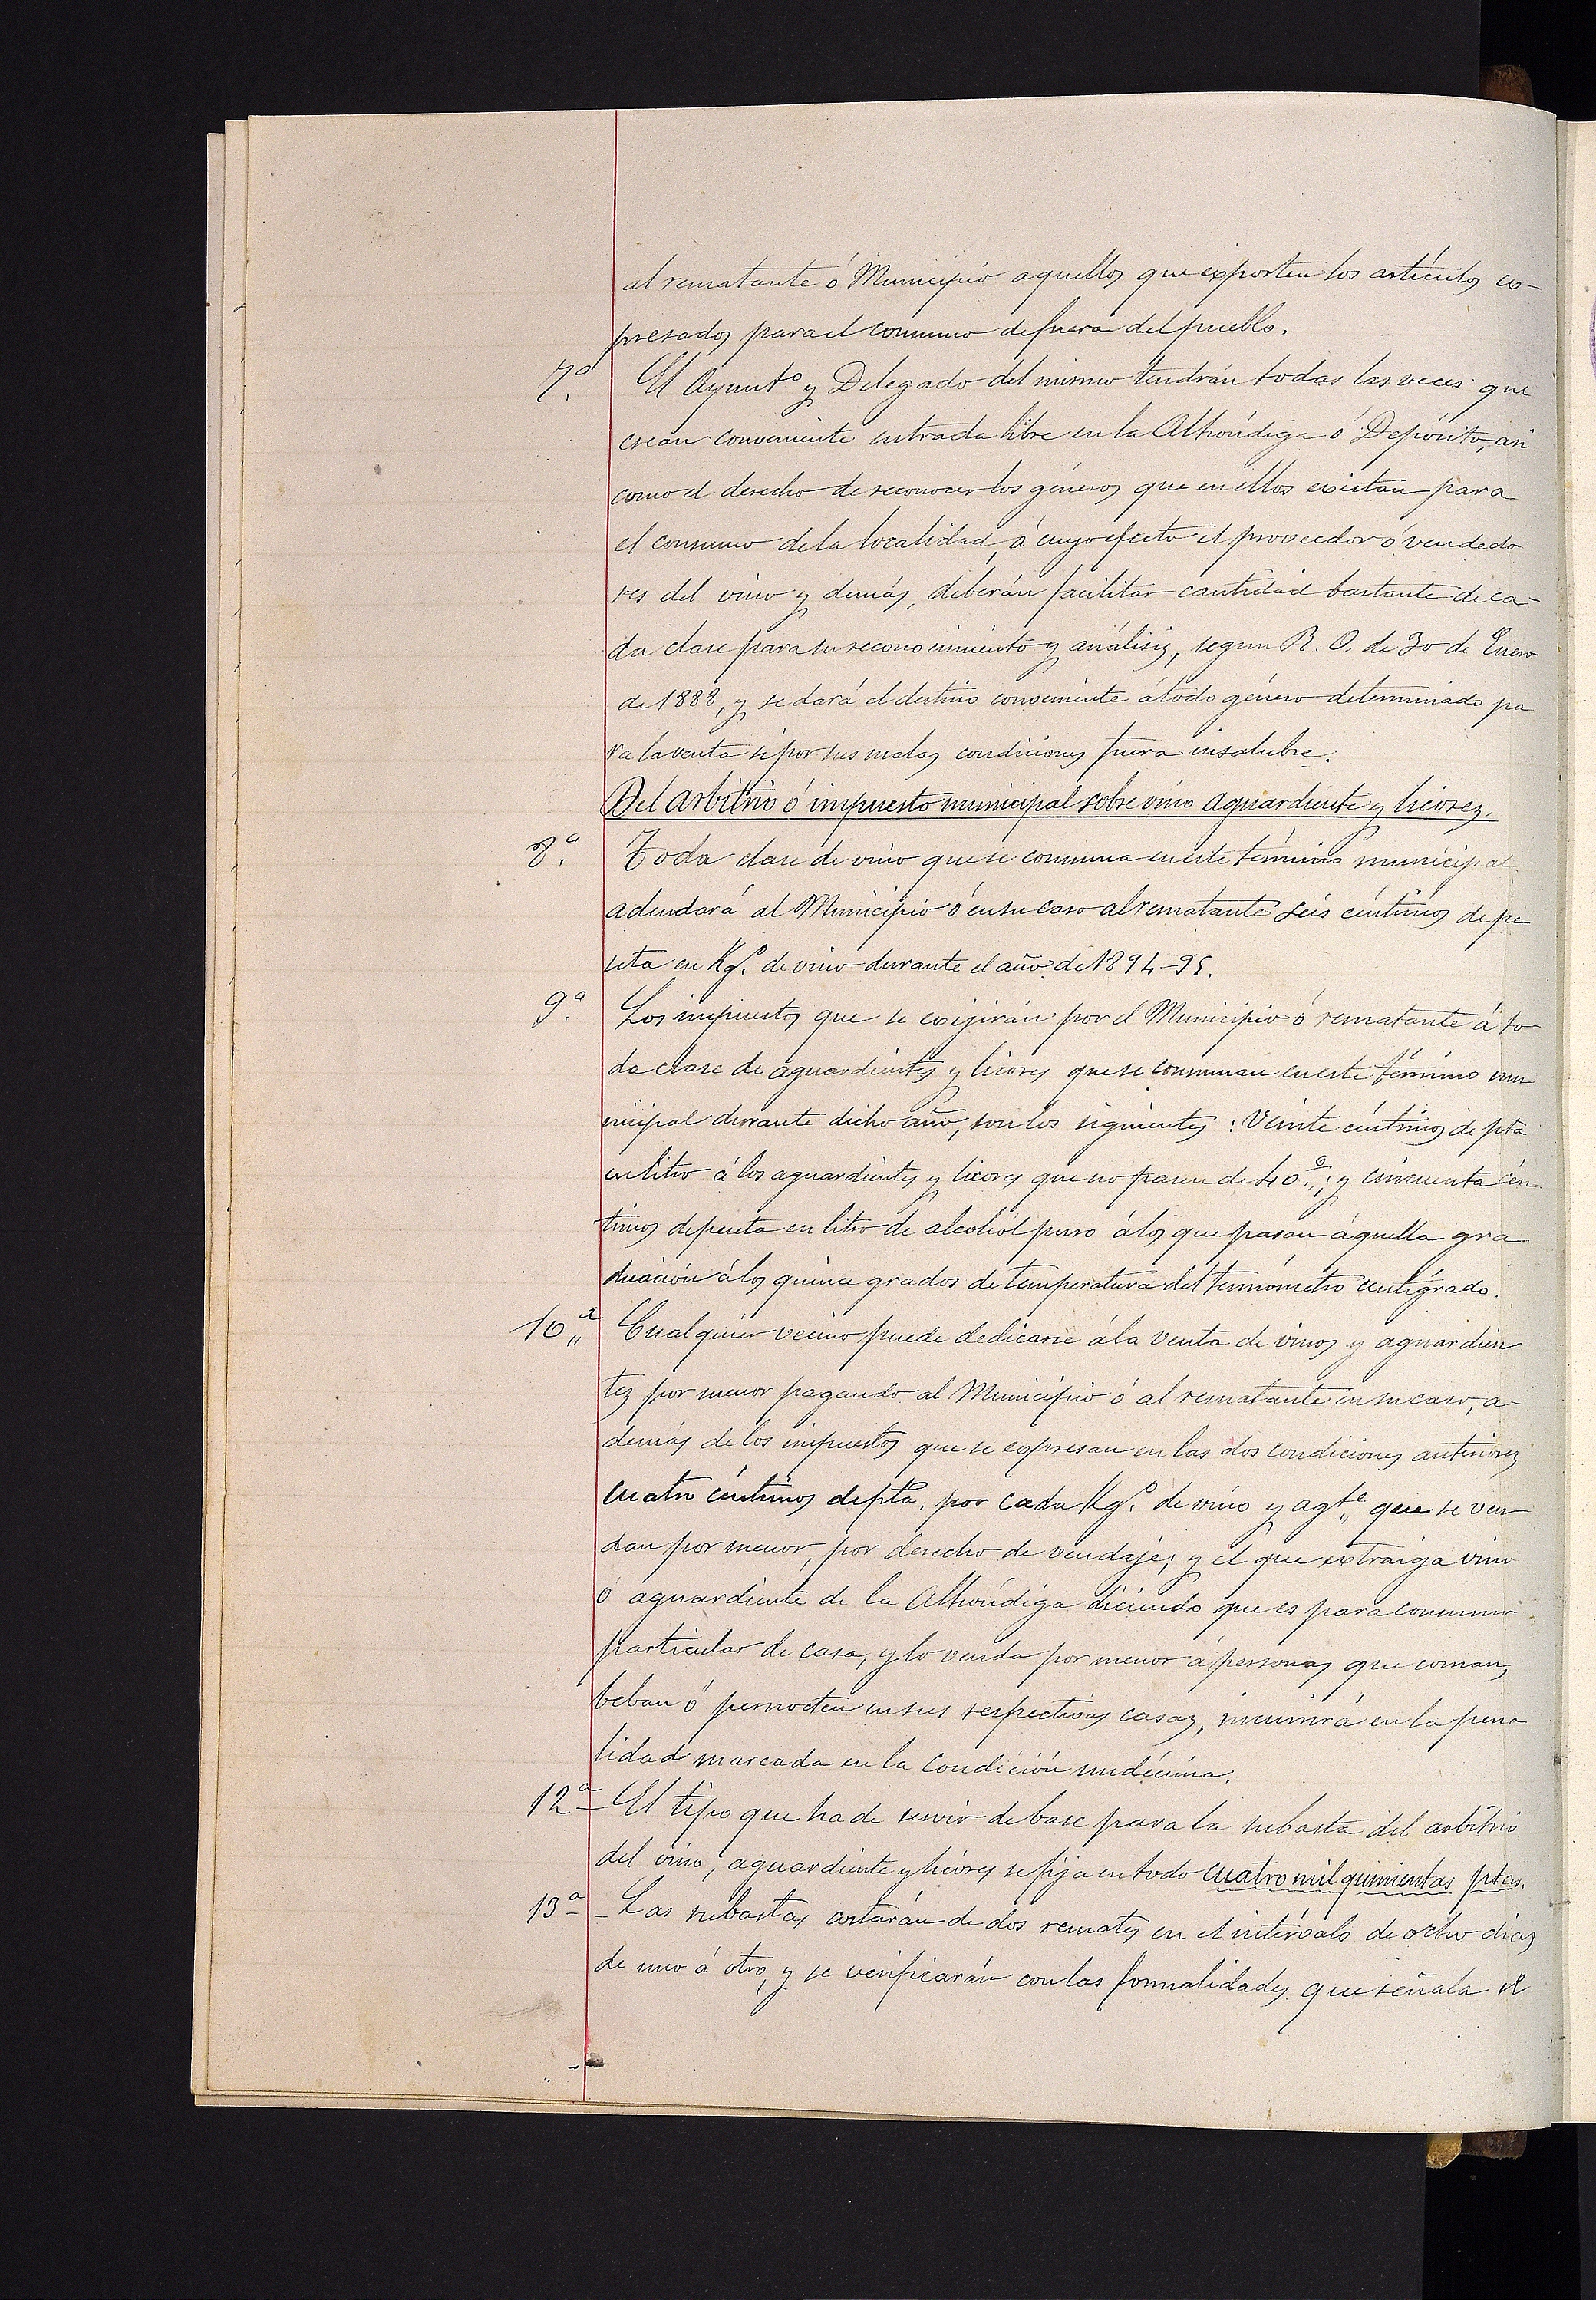 al rematante ó Municipio aquellos que exporten los artículos ex-
presados para el consumo de fuera del pueblo.
7.ª El Ayunt.º y Delegado del mismo tendrán todas las veces que
crean conveniente entrada libre en la Alhóndiga ó Depósito, asi
como el derecho de reconocer los géneros que en ellos existan para
el consumo de la localidad, á cuyo efecto el proveedor ó vendedo
res del vino y demás, deberán facilitar cantidad bastante de ca-
da clase para su reconocimiento y análisis, segun R. O. de 30 de Enero
de 1888, y se dará el destino conveniente á todo género determinado pa
ra la venta si por sus malas condiciones fuera insalubre.
Del arbitrio ó impuesto municipal sobre vino aguardiente y licores.
8.ª Toda clase de vino que se consuma en este término municipal
adeudará al Municipio ó en su caso al rematante seis céntimos de pe
seta en Kg.º de vino durante el año de 1894-95.
9.ª Los impuestos que se exijirán por el Municipio ó rematante á to
da clase de aguardientes y licores que se consuman en este término mu
nicipal durante dicho año, son los siguientes: Veinte céntimos de pta
en litro á los aguardientes y licores que no pasen de 40.º; y cincuenta cén
timos de peseta en litro de alcohol puro á los que pasan áquella gra
duación á los quince grados de temperatura del termómetro centígrado.
10.ª Cualquier vecino puede dedicarse á la venta de vinos y aguardien
tes por menor pagando al Municipio ó al rematante en su caso, a-
demás de los impuestos que se expresan en las dos condiciones anteriores
cuatro céntimos de pta. por cada Kg.º de vino y agte. que se ven
dan por menor, por derecho de vendaje; y el que extraiga vino
ó aguardiente de la Alhóndiga diciendo que es para consumo
particular de casa, y lo venda por menor á personas que coman,
beban ó pernocten en sus respectivas casas, incurrirá en la pena
lidad marcada en la condición undécima.
12.ª El tipo que ha de servir de base para la subasta del arbitrio
del vino, aguardiente y licores se fija en todo cuatro mil quinientas ptas.
13.ª - Las subastas constarán de dos remates en el intérvalo de ocho dias
de uno á otro, y se verificarán con las formalidades que señala el